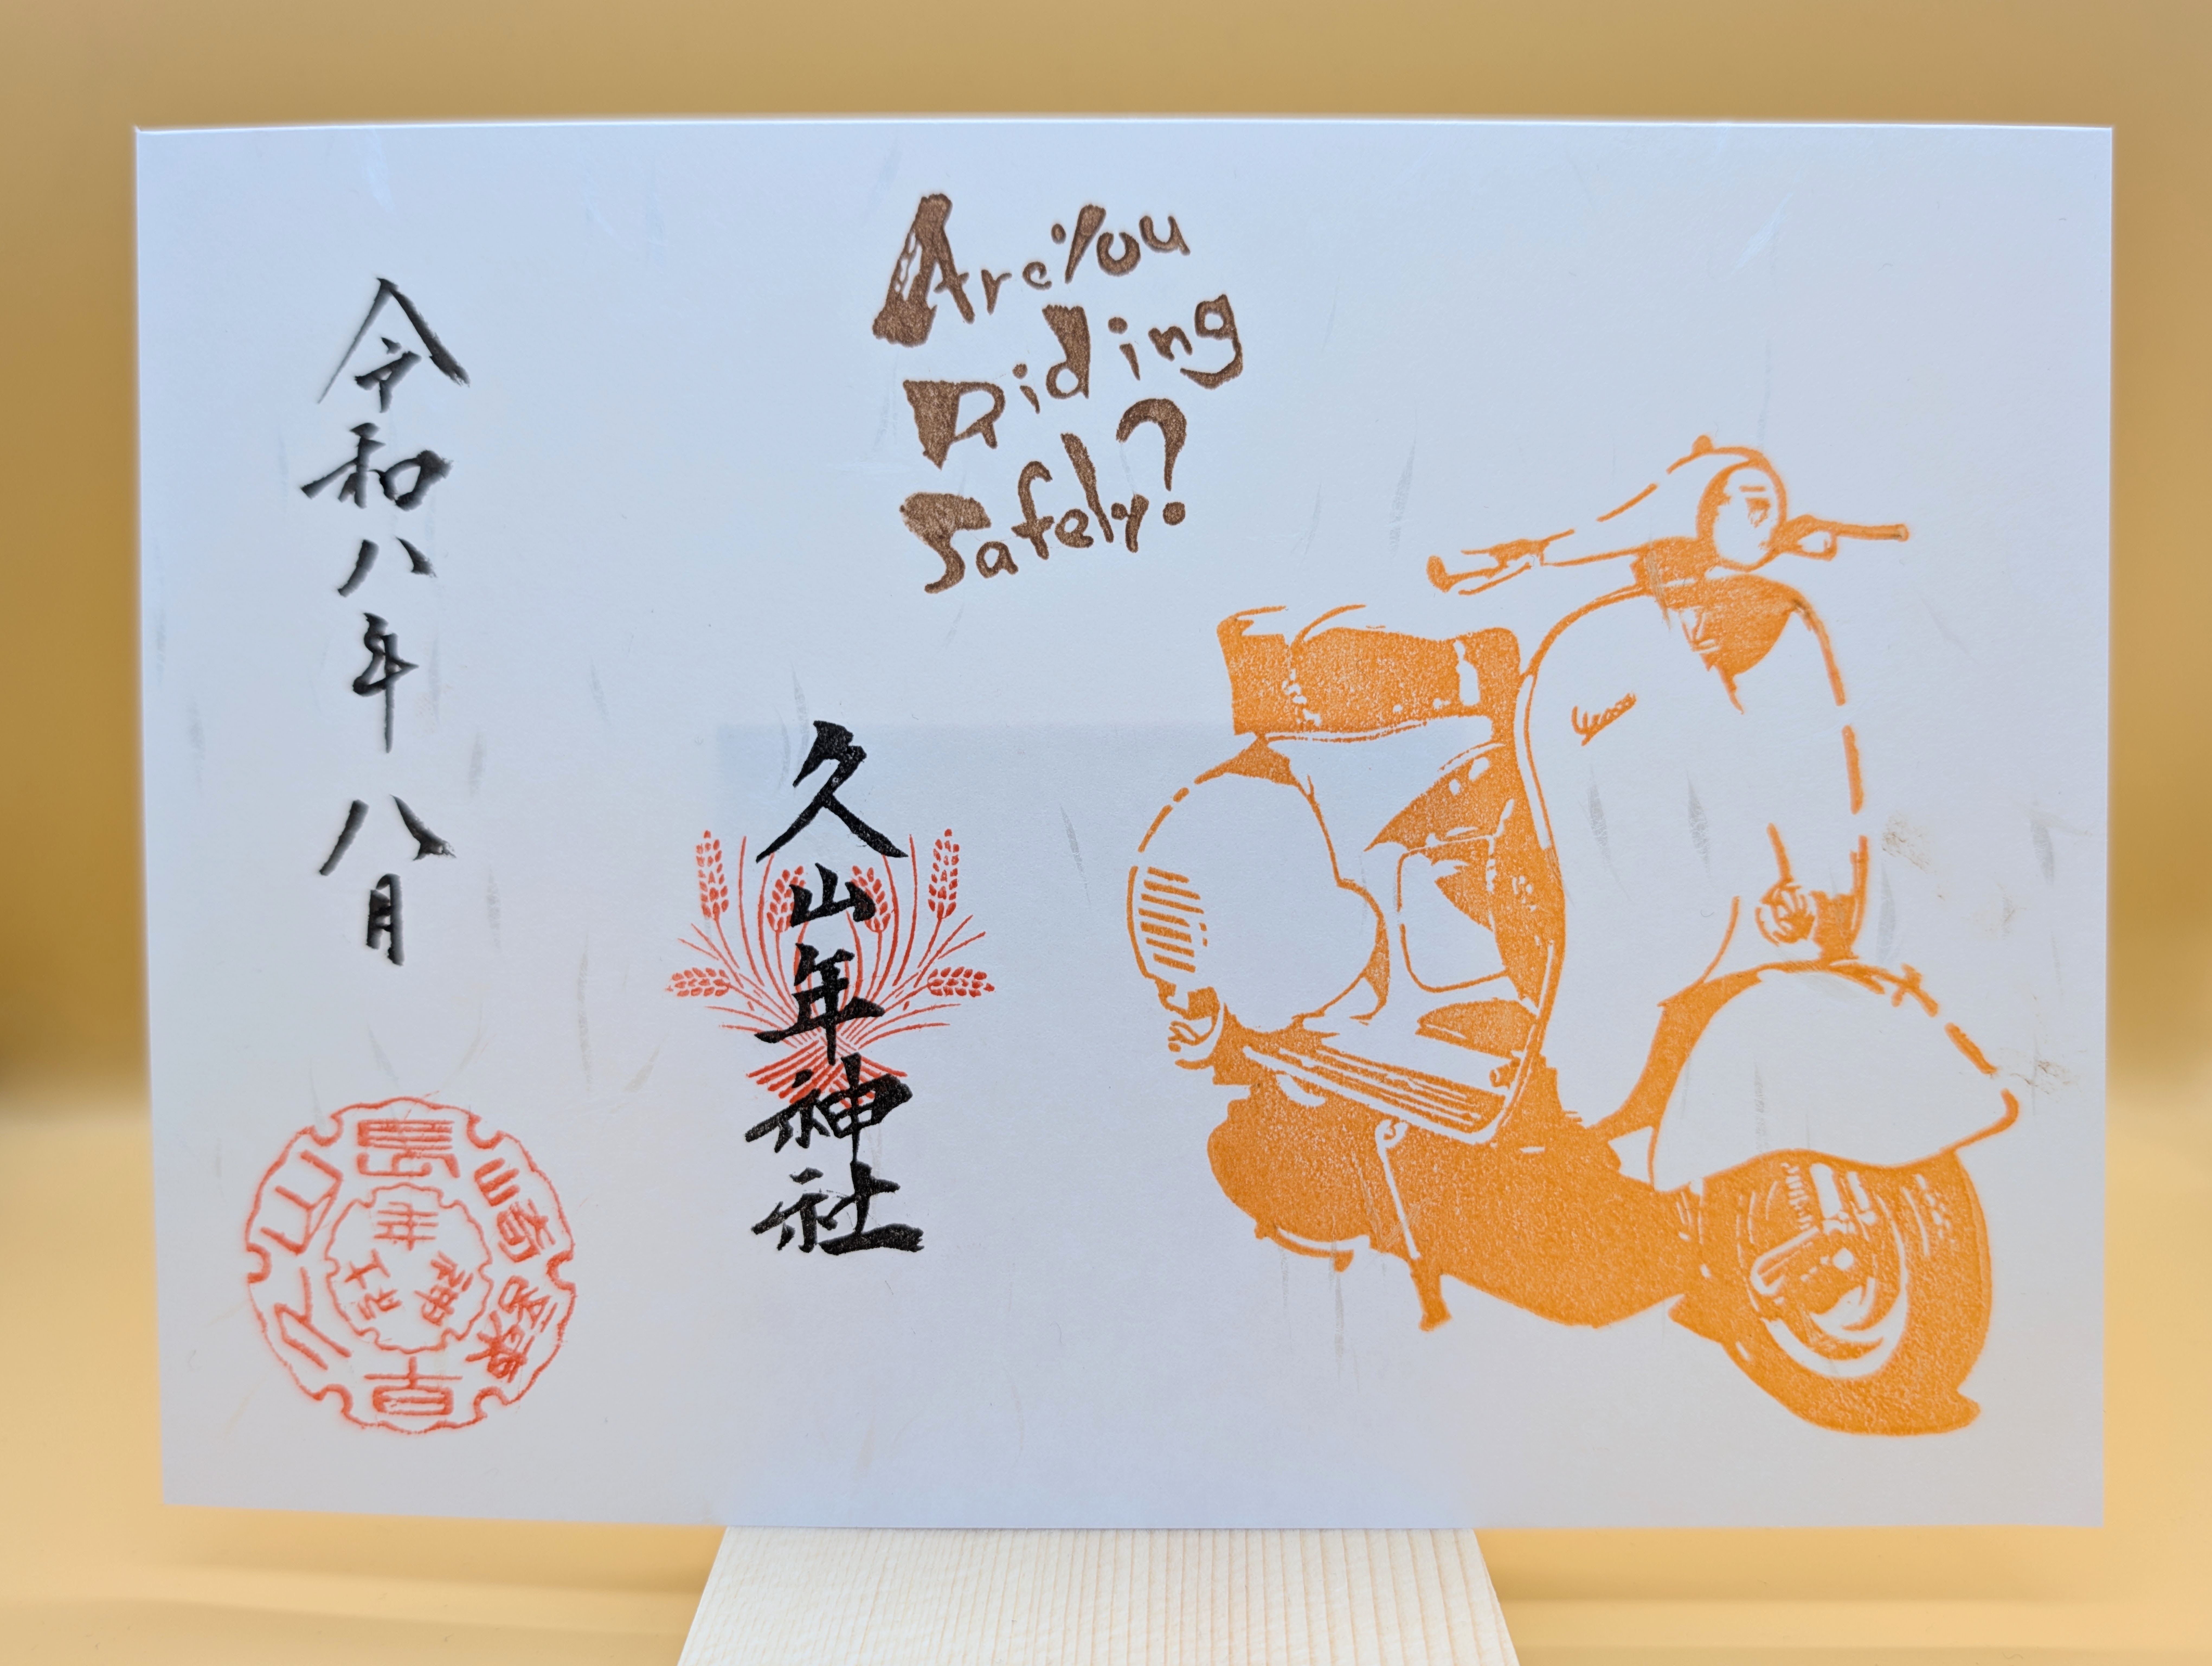 Are You
Riding
Safely?
Vespa
久山年神社
令和八年八月
年神社